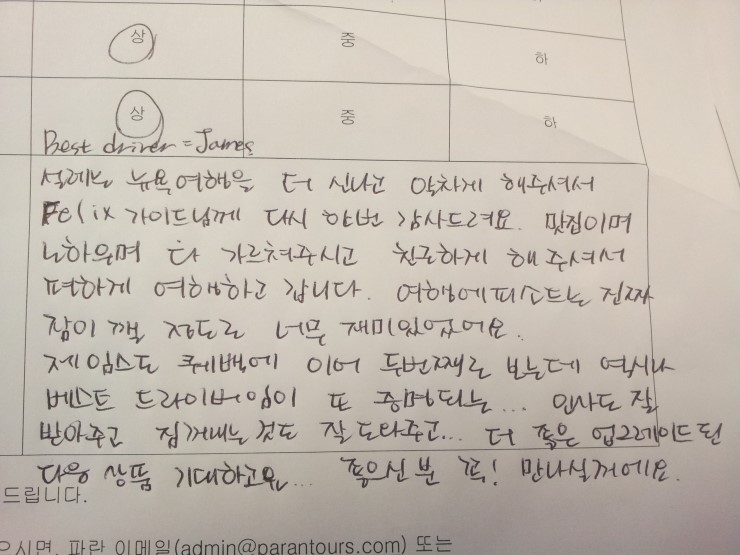 상 중 하
상 중 하
Best driver = James
설레는 뉴욕여행을 더 신나고 알차게 해주셔서
Felix 가이드님께 다시 한번 감사드려요. 맛집이며
노하우며 다 가르쳐주시고 친근하게 해 주셔서
편하게 여행하고 갑니다. 여행에피소드는 진짜
잠이 깰 정도로 너무 재미있었어요.
제임스도 퀘백에 이어 두번째로 보는데 역시나
베스트 드라이버임이 또 증명되는... 인사도 잘
받아주고 짐꺼내는 것도 잘 도와주고... 더 좋은 업그레이드 된
다음 상품 기대하고요... 좋으신 분 꼭! 만나실꺼에요.
드립니다.
으시면, 파란 이메일(admin@parantours.com) 또는